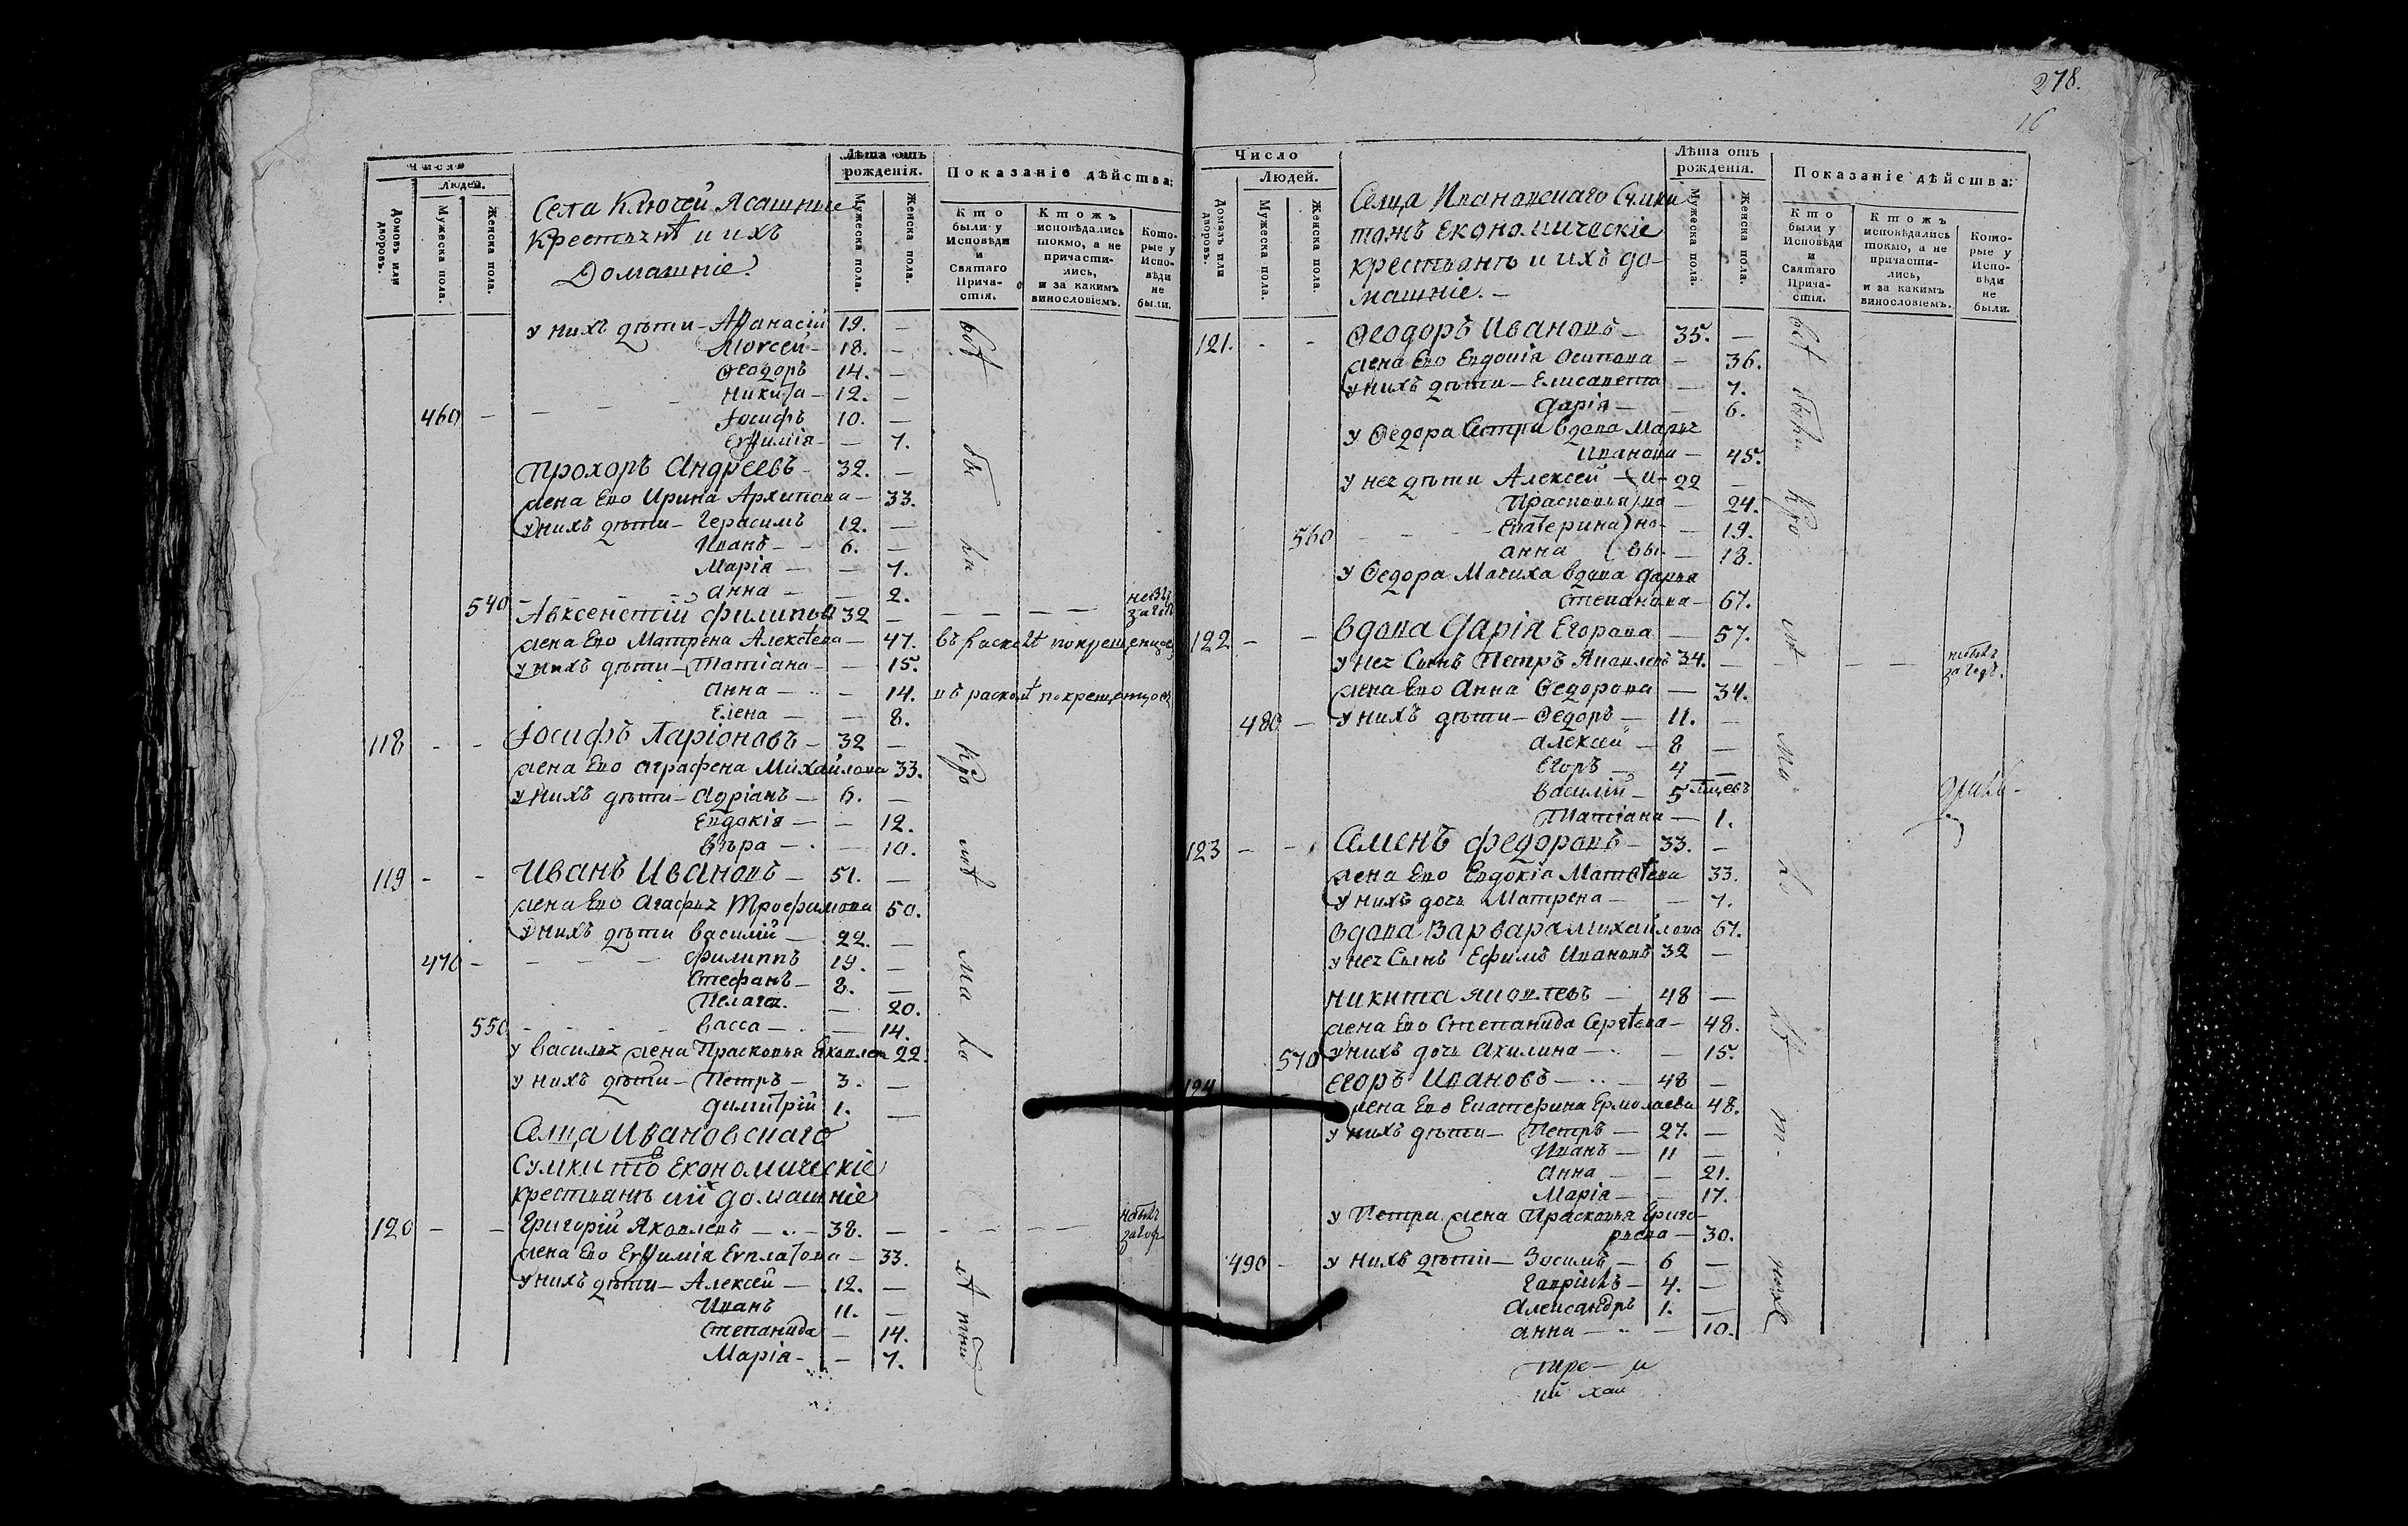 Число
Людей.
Домовъ или дворовъ.
Мужеска пола.
Женска пола.
Села Ключей Ясашные
Крестьянѣ и ихъ
Домашніе.
Лѣта отъ рожденія.
Мужеска пола.
Женска пола.
Показаніе дѣйства:
Кто были у Исповѣди и Святаго Причастія.
Ктожъ исповѣдались токмо, а не причастились, и за какимъ винословіемъ.
Которые у Исповѣди не были.
у нихъ дѣти - Аѳанасій 19. -
Моѵсей - 18. -
Ѳеодоръ 14. -
Никита - 12. -
460 - Іосифъ 10. -
Еѵѳимія - - 7.
Прохоръ Андреевъ - 32. -
жена Его Ирина Архипова - 33.
у нихъ дѣти - Герасимъ 12. -
Иванъ - - 6. -
Марія - - 7.
540 - анна - - 2.
Авксентій Филиповъ 32 -
жена Его Матрена Алексѣева - 47. въ расколѣ
у нихъ дѣти - Татіана - - 15.
Анна - - 14. въ расколѣ
Елена - - 8.
118 - - Іосифъ Ларіоновъ - 32 -
жена Его Аграфена Михайлова 33.
у нихъ дѣти - Адріанъ - 6. -
Евдокія - - 12.
Вѣра - - 10.
119 - - Иванъ Ивановъ - 51. -
жена Его Агафья Трофимова 50.
у нихъ дѣти Василій - 22. -
470 - Филиппъ 19. -
Стефанъ - 8. -
Пелагея - 20.
550 - Васса - - 14.
у Василья жена Прасковья Яковлева 22.
у нихъ дѣти - Петръ - 3. -
Димитрій 1. -
Селца Ивановскаго
Сумки тожъ Економическіе
крестьянѣ и ихъ домашніе
120 - - Григорій Яковлевъ - 38. -
жена Его Еѵѳимія Еѵплатова - 33.
у нихъ дѣти - Алексей - 12. -
Иванъ 11. -
Степанида - 14.
Марія - - 7.
278.
16
Число
Людей.
Домовъ или дворовъ.
Мужеска пола.
Женска пола.
Селца Ивановскаго Сумки
тожъ Економическіе
крестьянѣ и ихъ до-
машніе. -
Лѣта отъ рожденія.
Мужеска пола.
Женска пола.
Показаніе дѣйства:
Кто были у Исповѣди и Святаго Причастія.
Ктожъ исповѣдались токмо, а не причастились, и за какимъ винословіемъ.
Которые у Исповѣди не были.
121. - - Ѳеодоръ Ивановъ - 35. -
жена Его Евдокія Осипова - 36.
у нихъ дѣти - Елисавета - 7.
Дарія - - 6.
у Ѳедора Сестра вдова Марья
Иванова - 45.
у нея дѣти Алексей - 22 -
Прасковья - 24.
560 - Екатерина - 19.
анна - 18.
у Ѳедора Мачиха вдова Дарья
Степанова - 67.
122 - - вдова Дарія Егорова - 57.
у нея Сынъ Петръ Яковлевъ 34. -
жена Его Анна Ѳедорова - 34.
480 - у нихъ дѣти - Ѳедоръ - 11. -
Алексей - 8 -
Егоръ - 4 -
Василій - 5 мцевъ
Татіана - 1.
123 - - Семенъ Федоровъ - 33. -
жена Его Евдокія Матвѣева 33.
у нихъ дочь Матрена - - 7.
вдова Варвара Михайлова 67.
у нея Сынъ Ефимъ Ивановъ 32 -
Никита Яковлевъ - 48 -
жена Его Степанида Сергѣева - 48.
570 у нихъ дочь Акилина - - 15.
124 Егоръ Ивановъ - 48 -
жена Его Екатерина Ермолаева 48.
у нихъ дѣти - Петръ - 27. -
Иванъ - 11 -
Анна - - 21.
Марія - - 17.
у Петра жена Прасковья Григо-
рьева - 30.
490 - у нихъ дѣти - Зосимъ - 6 -
Гавріилъ - 4. -
Александръ 1. -
анна - - 10.